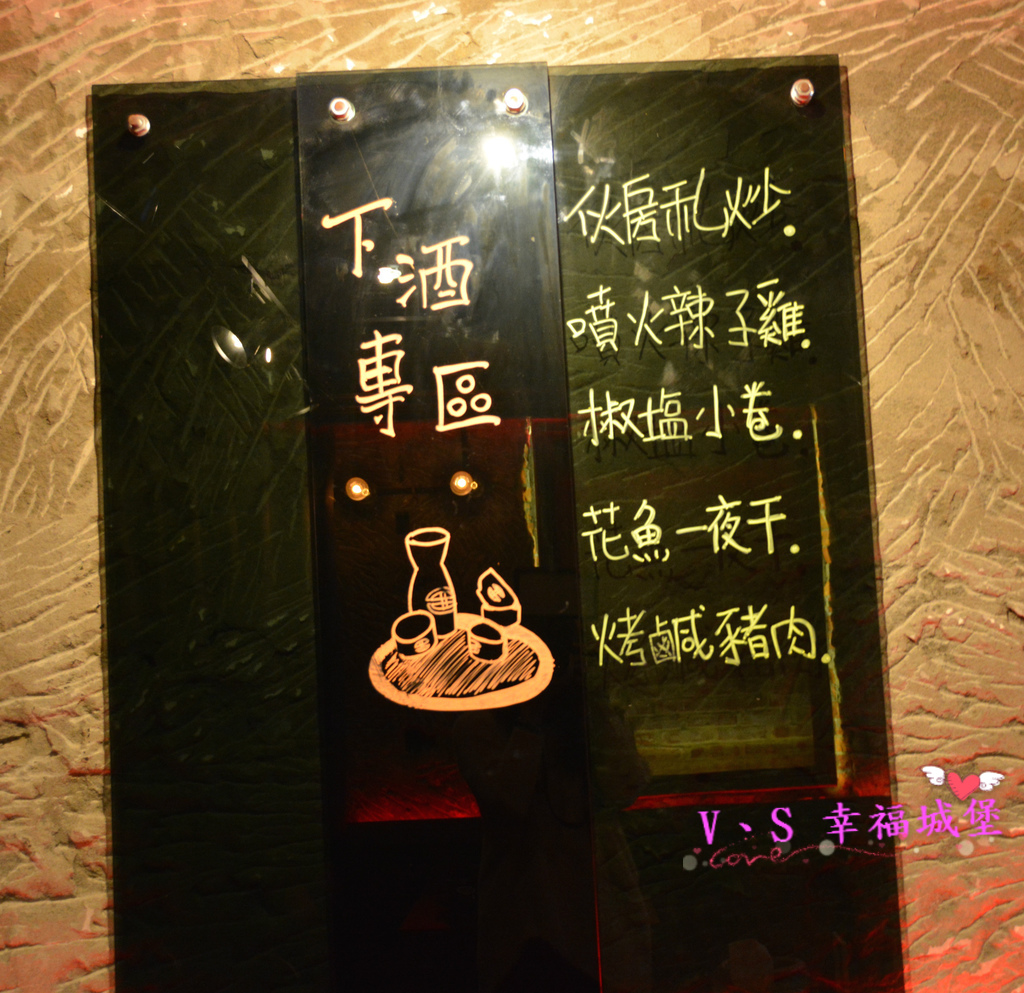 下酒
專區
伙房私炒.
噴火辣子雞.
椒塩小卷.
花魚一夜干.
烤鹹豬肉.
V、S 幸福城堡
Love